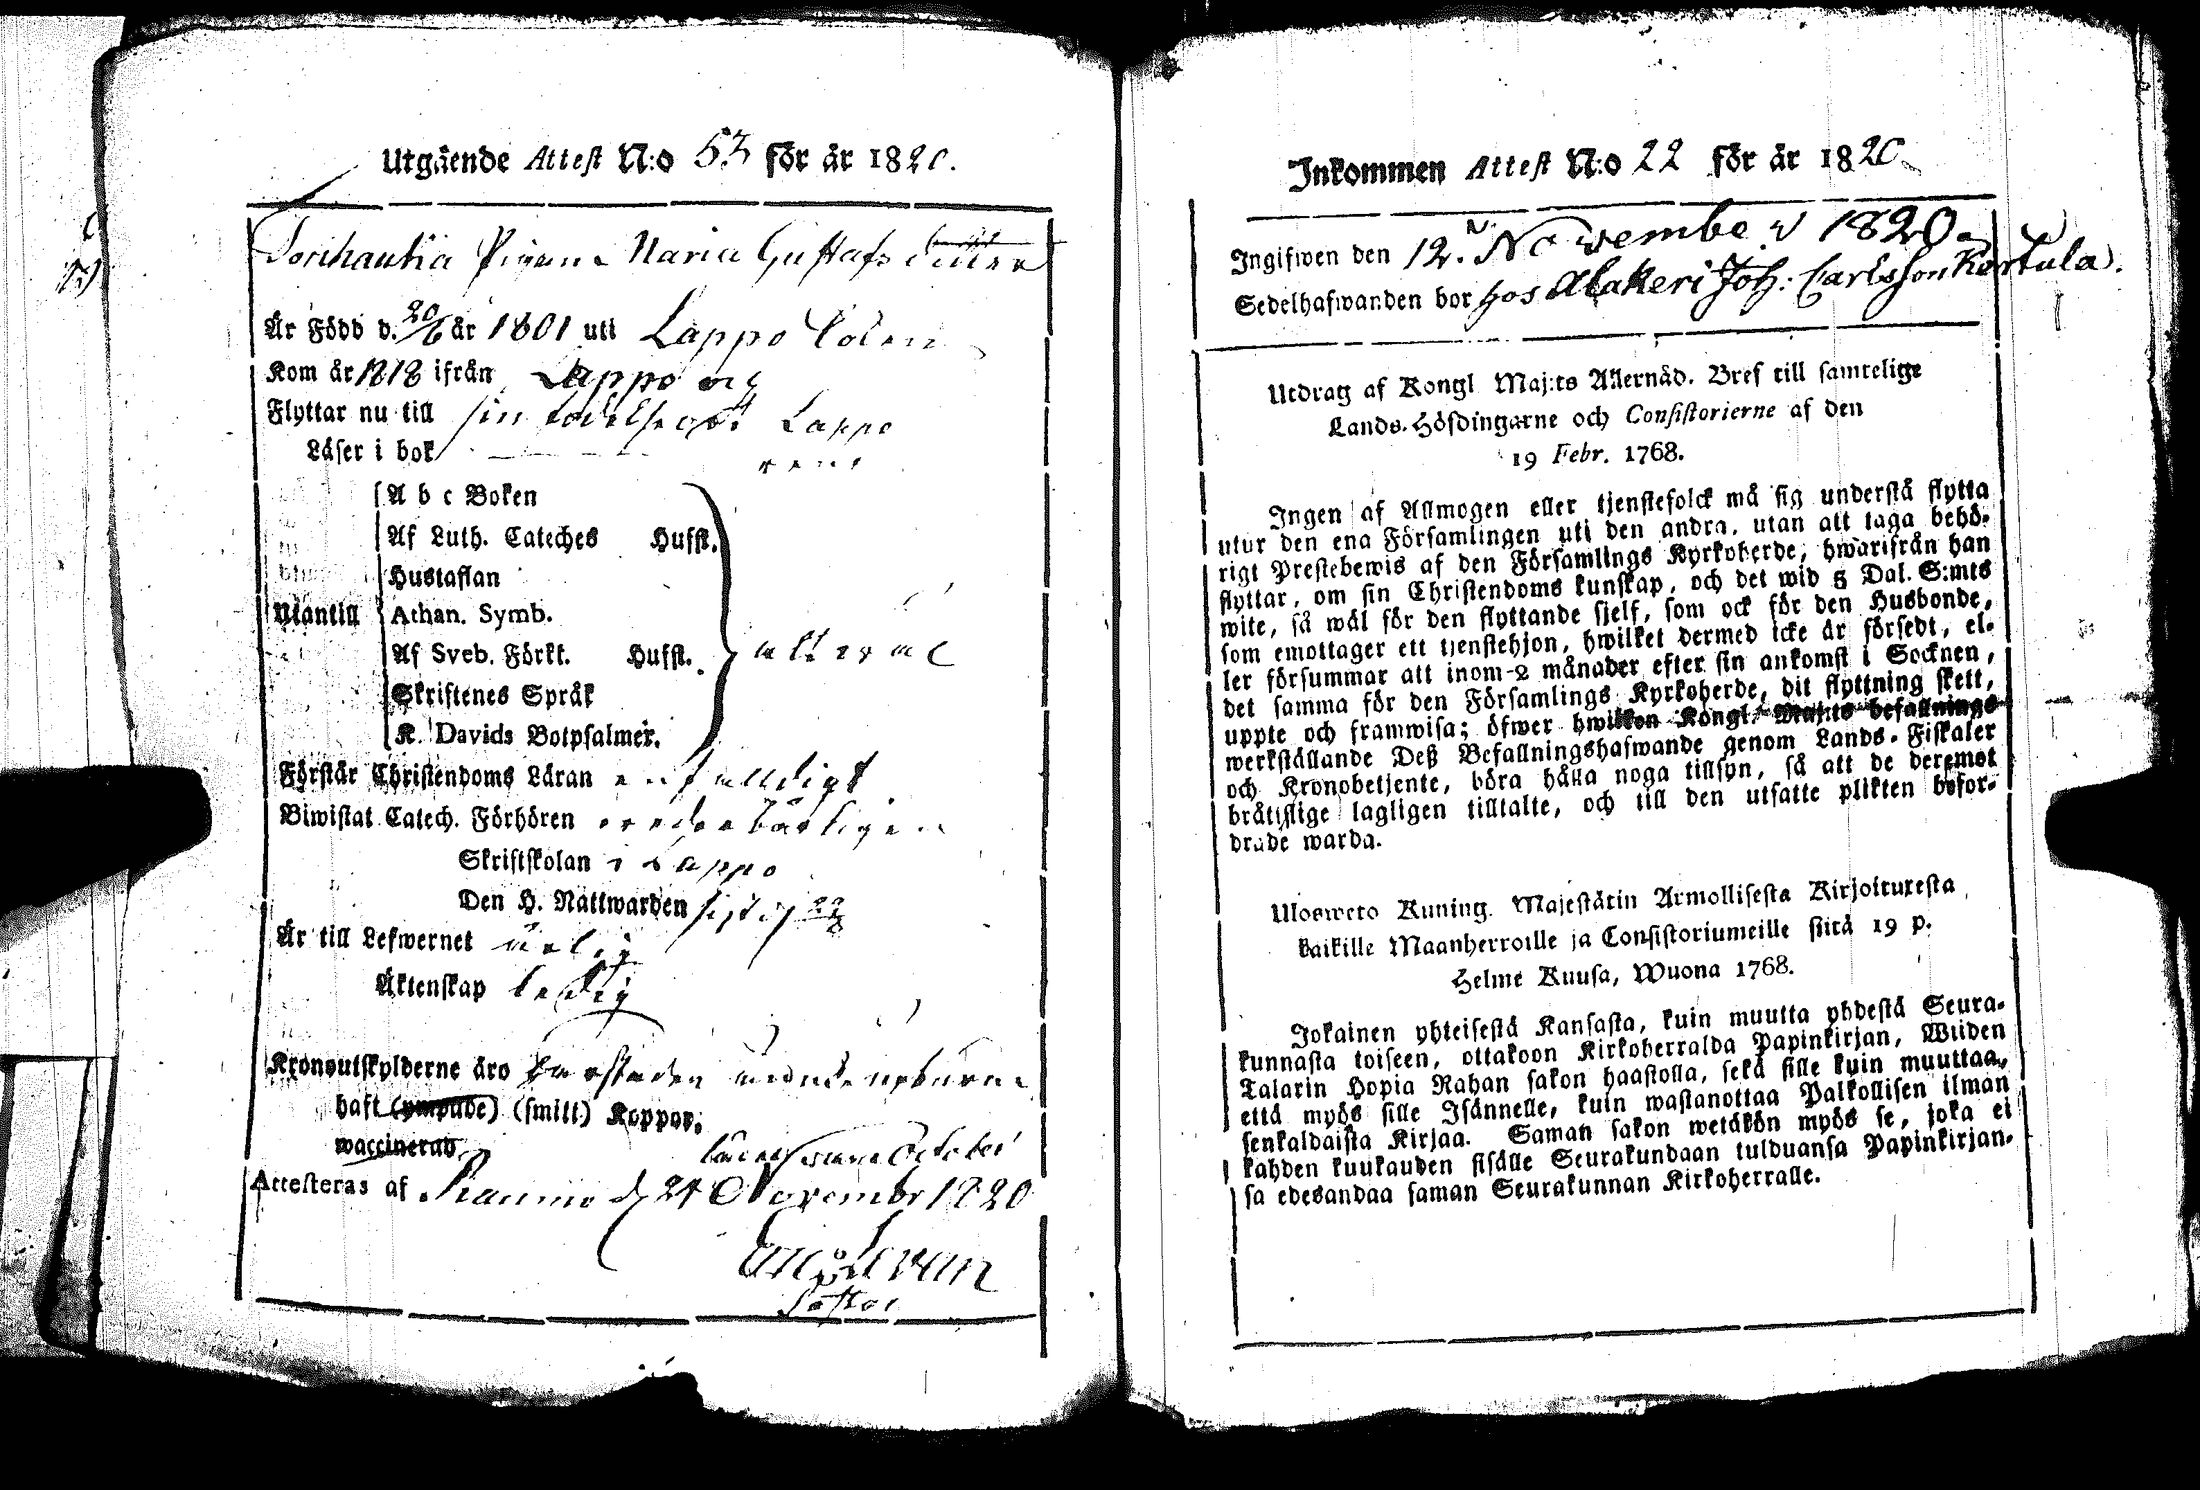 Utgående Attest N:o 53 för år 1820.
Pigan Maria Gustafs dotter
Är Född d. 20/6 år 1801 uti Lappo
Kom år 1818 ifrån Lappo
Flyttar nu till sin födelseort Lappo
Läser i bok rent
A b c Boken
Af Luth. Cateches Husst.
Hustaflan
Utantill Athan. Symb.
Af Sveb. Förkl. Husst.
Skriftenes Språk
K. Davids Botpsalmer.
alt wäl
Förstår Christendoms Läran enfaldigt
Biwistat Catech. Förhören
Skriftskolan i Lappo
Den H. Nattwarden sist d 22/8
Är till Lefwernet ärlig
Äktenskap ledig
Kronoutskylderne äro
haft (ympade) (smitt) Koppor.
waccinerad October
Attesteras af Raumo d. 24 November 1820
Ingifwen den 12. November 1820.
Inkommen Attest N:o 22 för år 1820
Sedelhafwanden bor hos Alakeri Joh: Carlsson Kertula.
Utdrag af Kongl Maj:ts Allernåd. Bref till samtelige
Lands-Höfdingarne och Consistorierne af den
19 Febr. 1768.
Ingen af Allmogen eller tjenstefolck må sig understå flytta
utur den ena Församlingen uti den andra, utan att taga behö-
rigt Prestebewis af den Församlings Kyrkoherde, hwarifrån han
flyttar, om sin Christendoms kunskap, och det wid 5 Dal. S:mts
wite, så wäl för den flyttande sjelf, som ock för den Husbonde,
som emottager ett tjenstehjon, hwilket dermed icke är försedt, el-
ler försummar att inom 2 månader efter sin ankomst i Socknen,
det samma för den Församlings Kyrkoherde, dit flyttning skett,
uppte och framwisa; öfwer hwilken Kongl. Maj:ts befallnings
werkställande Deß Befallningshafwande genom Lands-Fiskaler
och Kronobetjente, böra hålla noga tillsyn, så att de deremot
bråtislige lagligen tilltalte, och till den utsatte plikten befor-
drade warda.
Ulosweto Kuning. Majestätin Armollisesta Kirjoituxesta
kaikille Maanherroille ja Consistoriumeille siitä 19 p.
Helme Kuusa, Wuona 1768.
Jokainen yhteisestä Kansasta, kuin muutta yhdestä Seura-
kunnasta toiseen, ottakoon Kirkoherralda Papinkirjan, Wiiden
Talarin Hopia Rahan sakon haastolla, sekä sille kuin muuttaa,
että myös sille Isännelle, kuin wastanottaa Palkollisen ilman
senkaldaista Kirjaa. Saman sakon wetäkön myös se, joka ei
kahden kuukauden sisälle Seurakundaan tulduansa Papinkirjan-
sa edesandaa saman Seurakunnan Kirkoherralle.